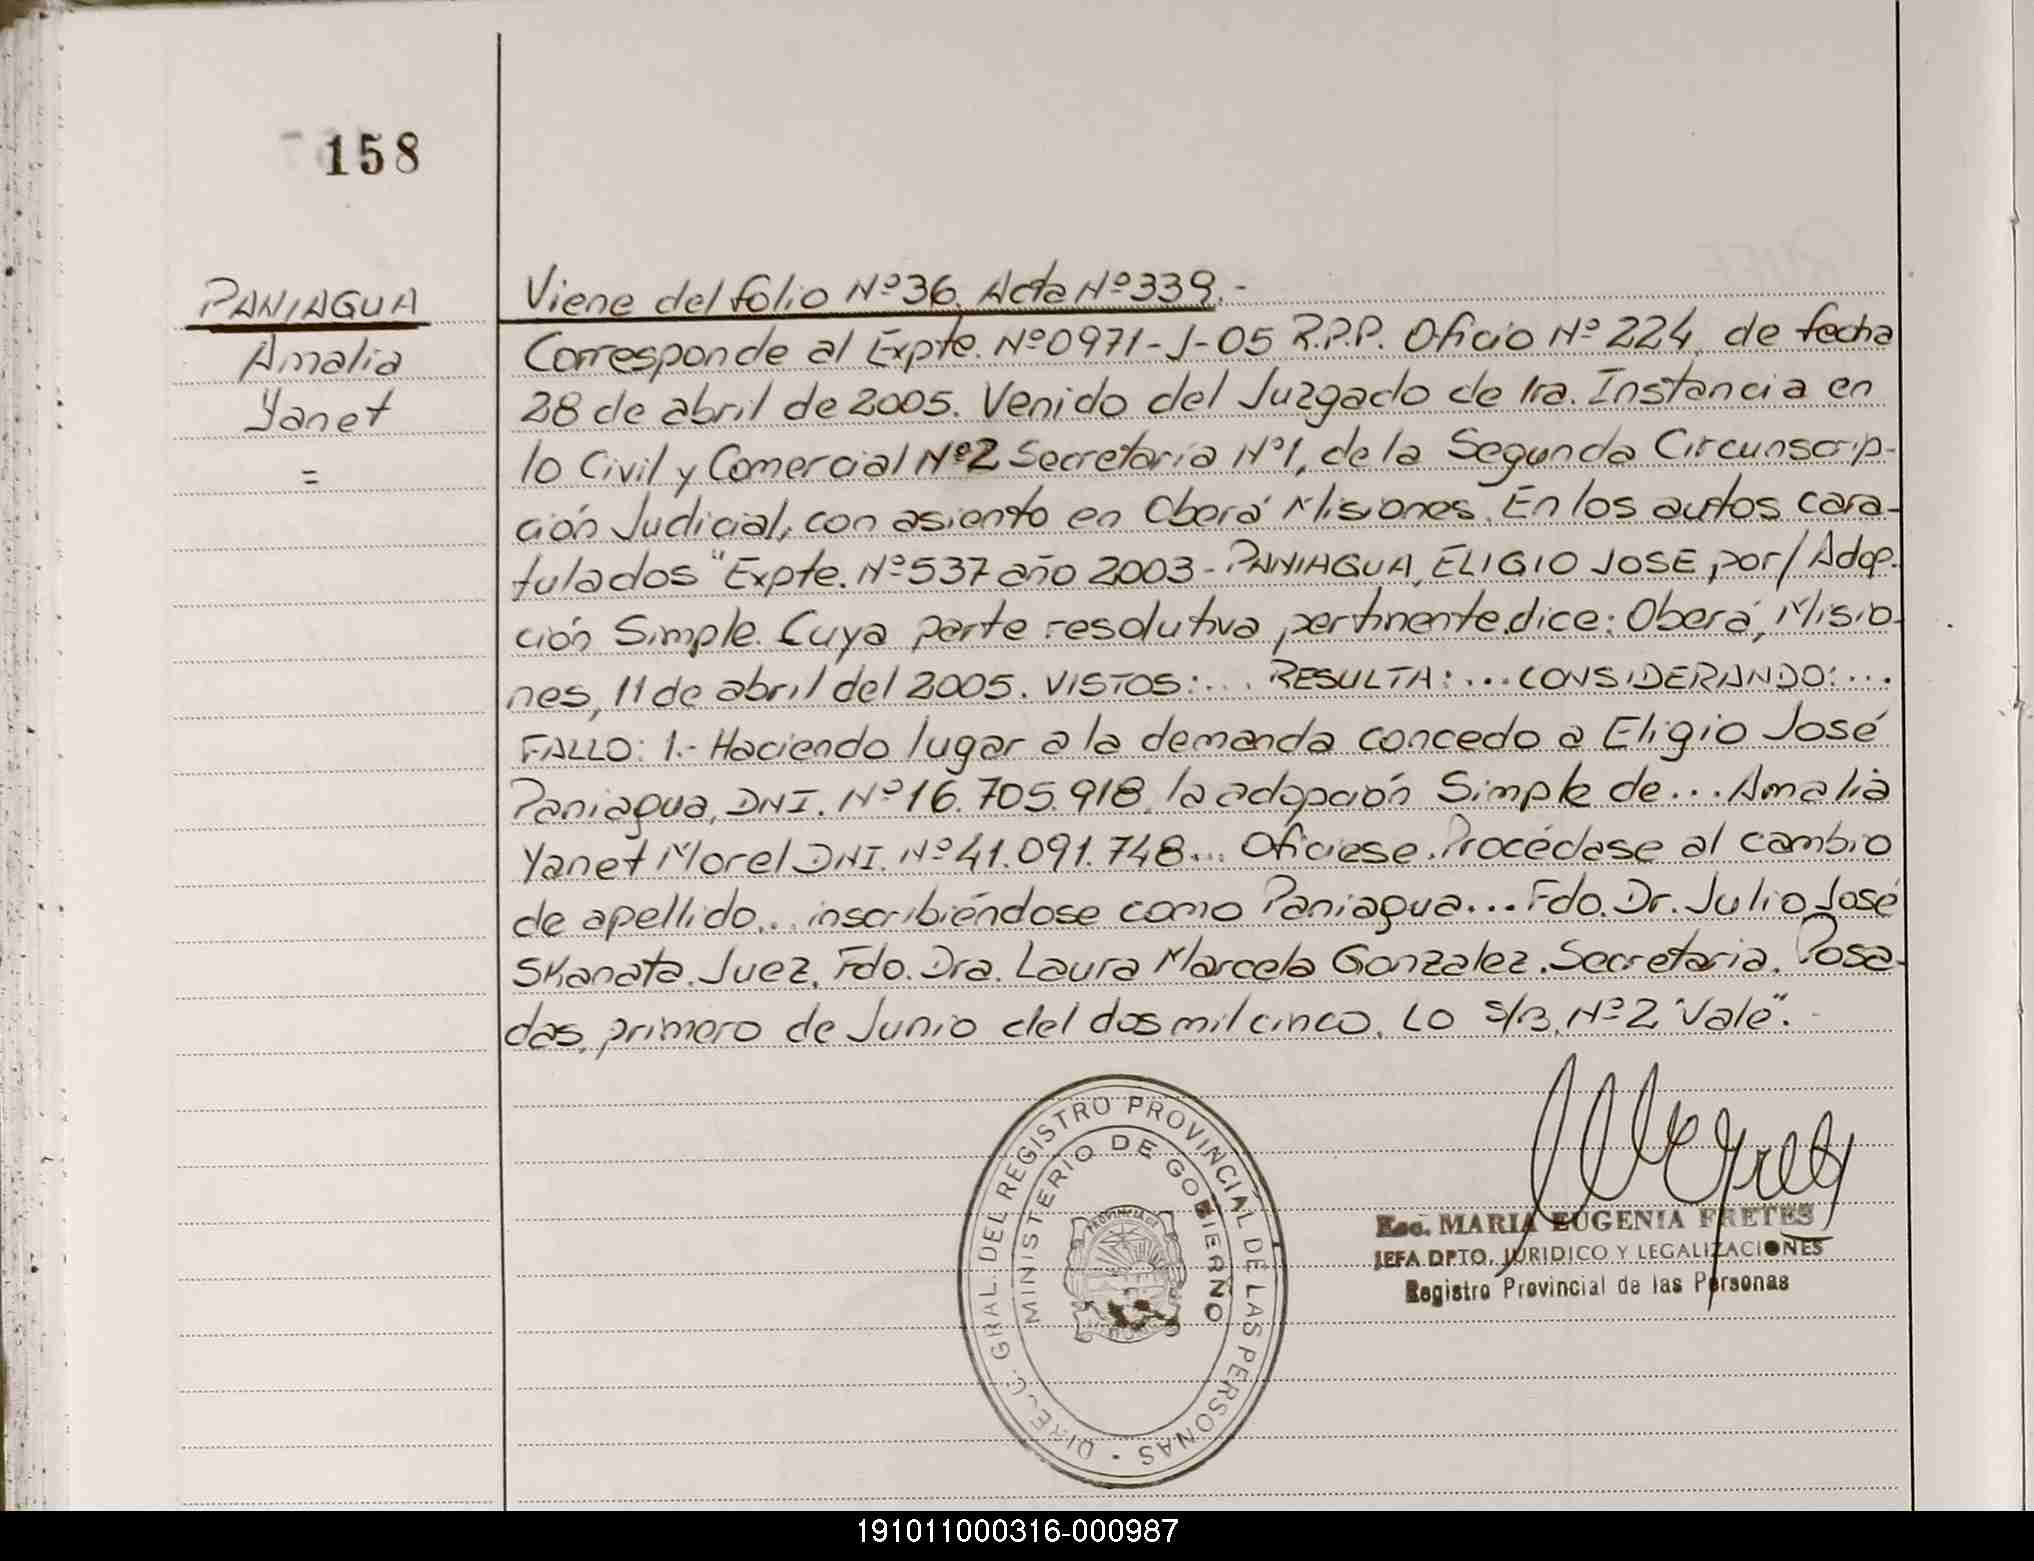 158
PANIAGUA
Amalia
Yanet
=
Viene del folio Nº 36. Acta Nº 339.-
Corresponde al Expte. Nº 0971-J-05 R.P.P. Oficio Nº 224, de fecha
28 de abril de 2005. Venido del Juzgado de 1ra. Instancia en
lo Civil y Comercial Nº 2 Secretaría Nº 1, de la Segunda Circunscrip-
ción Judicial, con asiento en Oberá Misiones. En los autos cara-
tulados "Expte. Nº 537 año 2003 - PANIAGUA, ELIGIO JOSE por/ Adop-
ción Simple. Cuya parte resolutiva pertinente dice: Oberá, Misio-
nes, 11 de abril del 2005. VISTOS:... RESULTA:... CONSIDERANDO:...
FALLO: 1.- Haciendo lugar a la demanda concedo a Eligio José
Paniagua, DNI. Nº 16.705.918, la adopción Simple de... Amalia
Yanet Morel DNI. Nº 41.091.748... Ofíciese. Procédase al cambio
de apellido... inscribiéndose como Paniagua... Fdo. Dr. Julio José
Skanata. Juez. Fdo. Dra. Laura Marcela Gonzalez. Secretaria. Posa-
das, primero de Junio del dos mil cinco. Lo S/B. Nº 2 "Vale".-
DIREC. GRAL. DEL REGISTRO PROVINCIAL DE LAS PERSONAS
MINISTERIO DE GOBIERNO
PROVINCIA DE
Esc. MARIA EUGENIA FRETES
JEFA DPTO. JURIDICO Y LEGALIZACIONES
Registro Provincial de las Personas
191011000316-000987